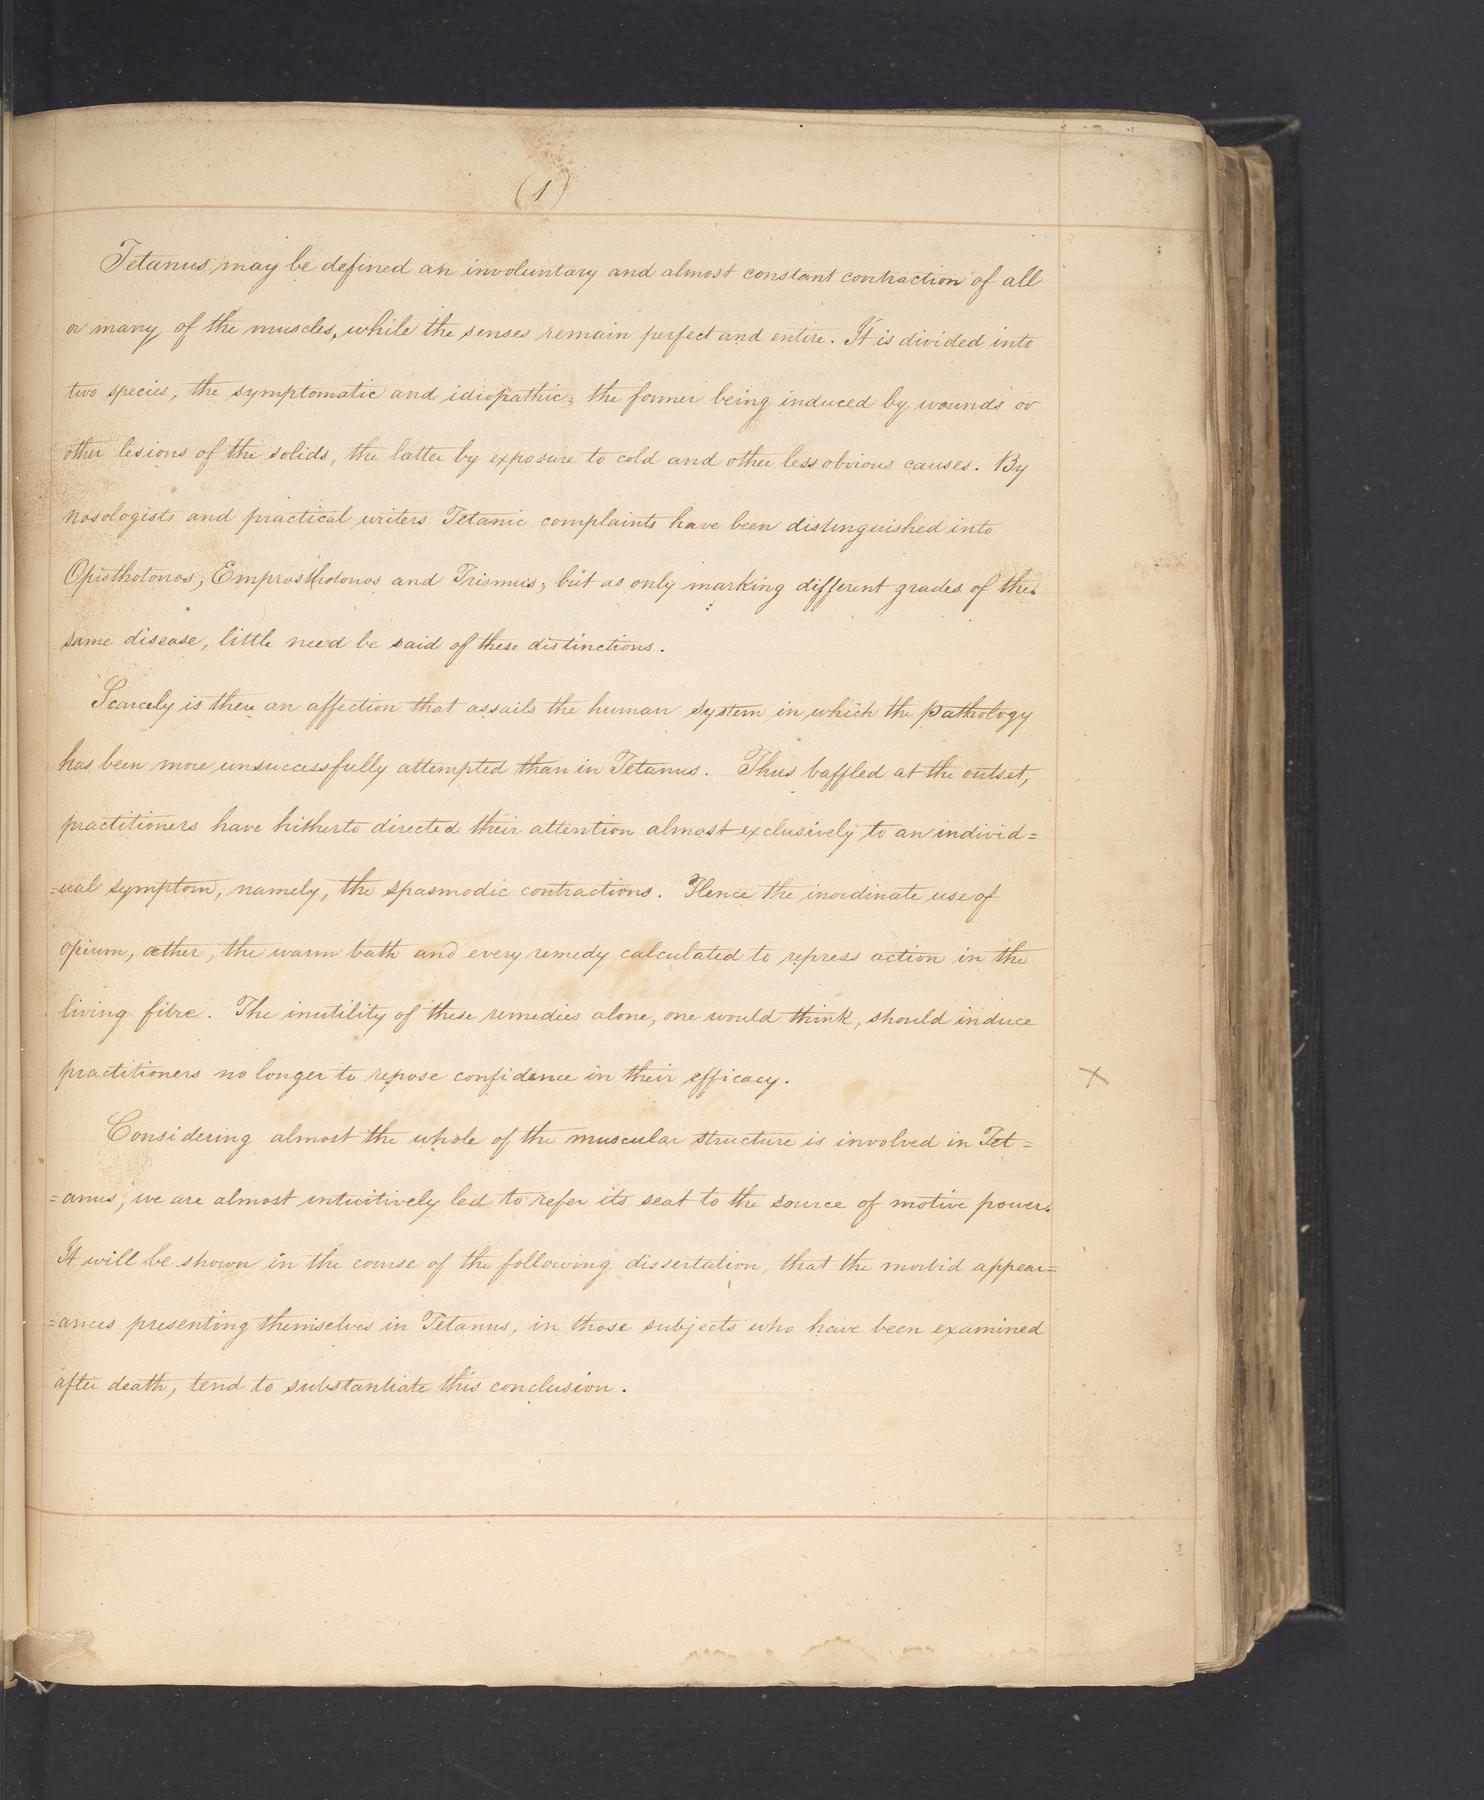 (1)
Tetanus may be defined an involuntary and almost constant contraction of all
or many, of the muscles, while the senses remain perfect and entire. It is divided into
two species, the symptomatic and idiopathic; the former being induced by wounds or
other lesions of the solids, the latter by exposure to cold and other less obvious causes. By
nosologists and practical writers Tetanic complaints have been distinguished into
Opisthotonos, Emprosthotonos and Trismus; but as only marking different grades of the
same disease, little need be said of these distinctions.
Scarcely is there an affection that assails the human system in which the pathology
has been more unsuccessfully attempted than in Tetanus. Thus baffled at the outset,
practitioners have hitherto directed their attention almost exclusively to an individ=
=ual symptom, namely, the spasmodic contractions. Hence the inordinate use of
opium, æther, the warm bath and every remedy calculated to repress action in the
living fibre. The inutility of these remedies alone, one would think, should induce
practitioners no longer to repose confidence in their efficacy.
X
Considering almost the whole of the muscular structure is involved in Tet=
=anus, we are almost intuitively led to refer its seat to the source of motive power.
It will be shown in the course of the following dissertation, that the morbid appear=
=ances presenting themselves in Tetanus, in those subjects who have been examined
after death, tend to substantiate this conclusion.